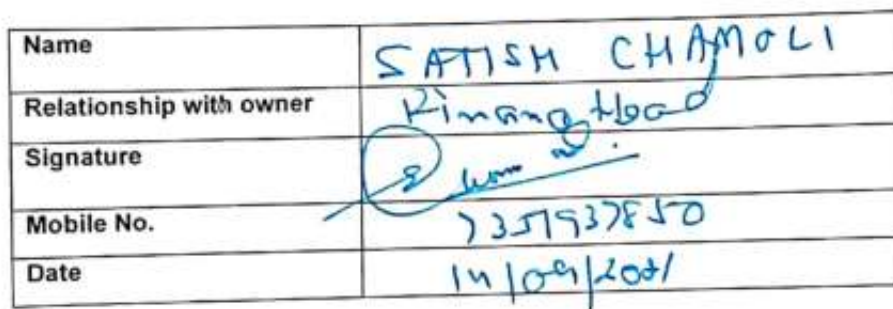 Name SATISH CHAMOLI
Relationship with owner Finang Head
Signature
Mobile No. 7351937850
Date 14/09/2021